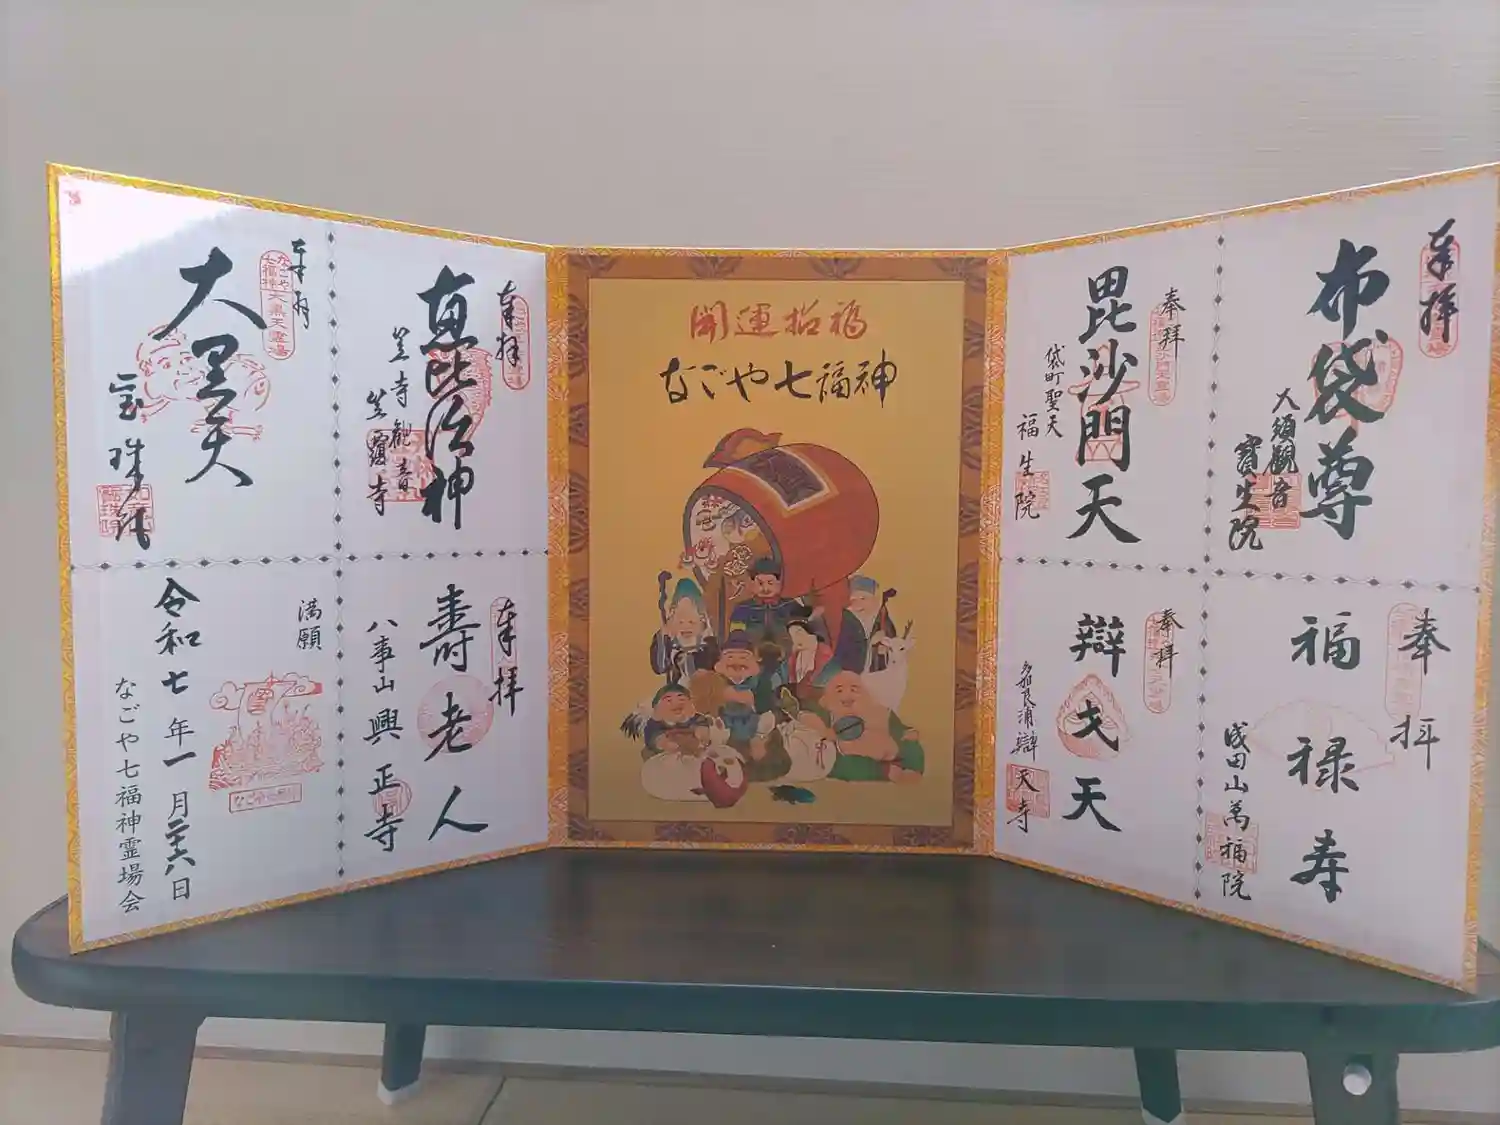 奉拝
布袋尊
大須觀音
寶生院
奉拝
福禄寿
成田山萬福院
奉拝
毘沙門天
袋町聖天
福生院
奉拝
辯才天
辯天寺
開運招福
なごや七福神
奉拝
恵比須神
笠寺観音
笠覆寺
奉拝
壽老人
八事山興正寺
奉拝
なごや七福神
大黒天霊場
大黒天
宝珠院
満願
令和七年一月二十六日
なごや七福神霊場会